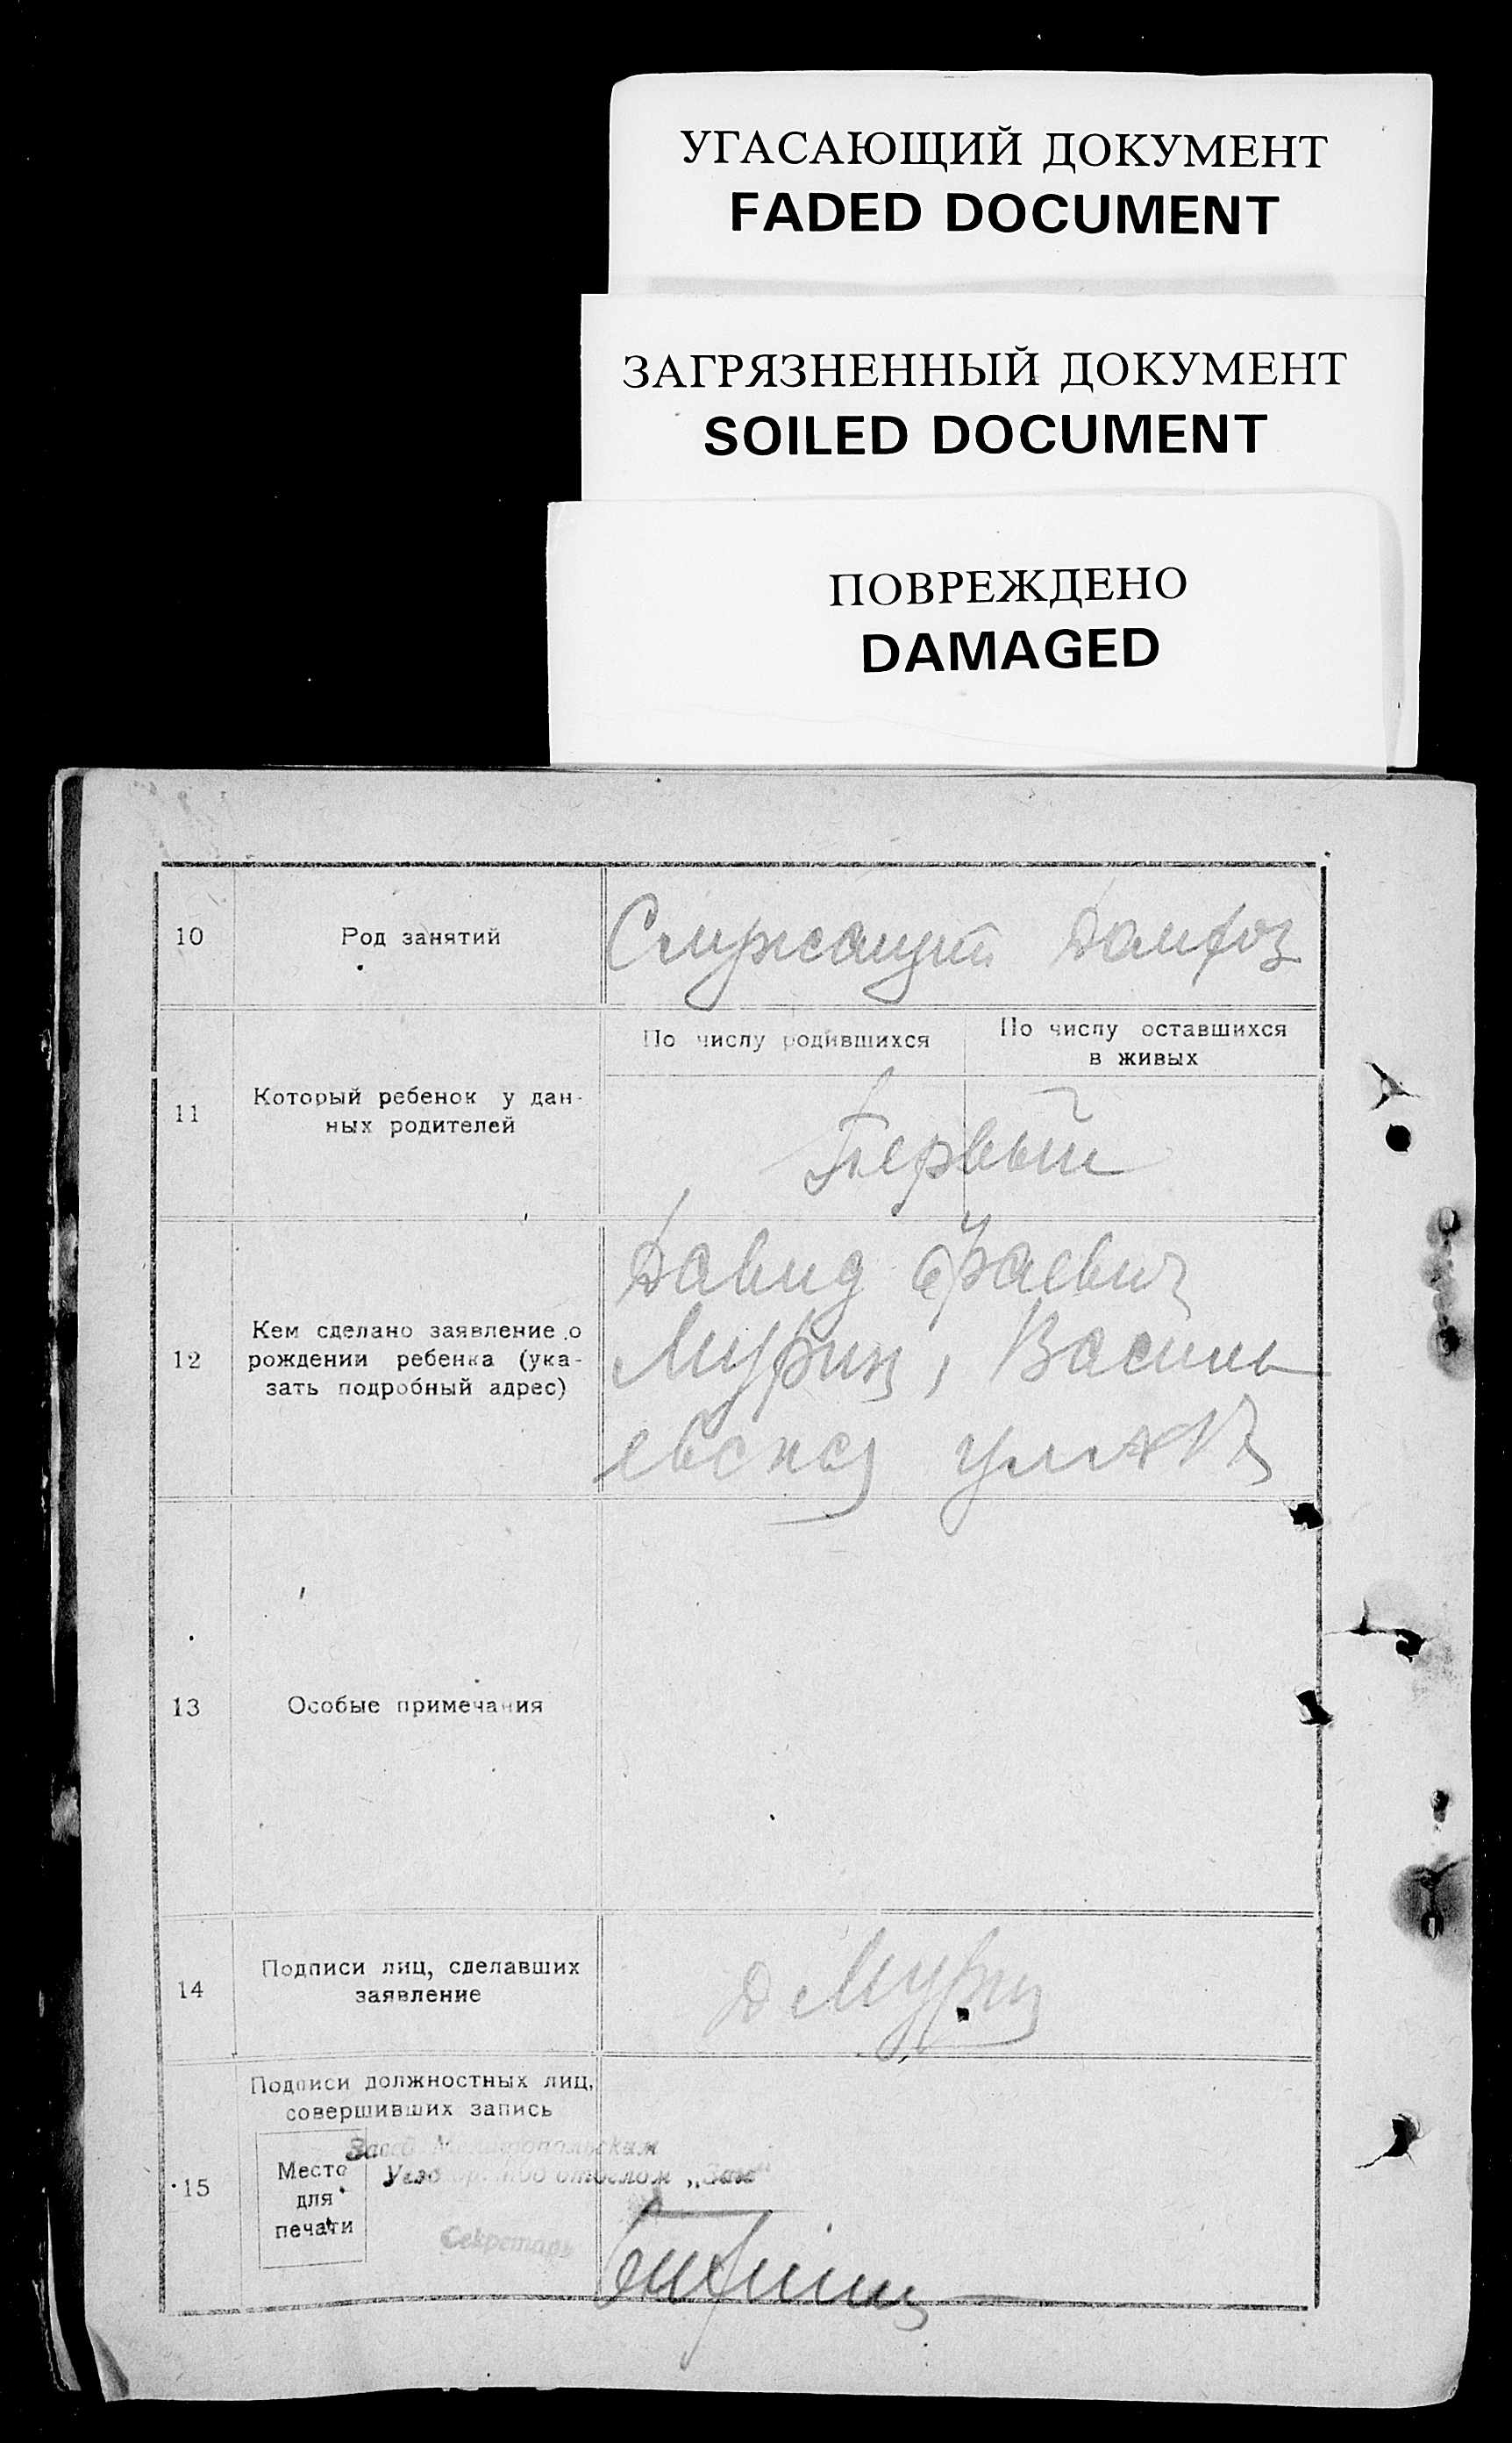 УГАСАЮЩИЙ ДОКУМЕНТ
FADED DOCUMENT
ЗАГРЯЗНЕННЫЙ ДОКУМЕНТ
SOILED DOCUMENT
ПОВРЕЖДЕНО
DAMAGED
10 Род занятий Служащий
По числу родившихся
По числу оставшихся
в живых
11 Который ребенок у дан-
ных родителей
Первый
12 Кем сделано заявление о
рождении ребенка (ука-
зать подробный адрес)
Давид
Василь
евская ул
13 Особые примечания
14 Подписи лиц, сделавших
заявление
Подписи должностных лиц,
совершивших запись
15 Место
для
печати
Завед. Мелитопольским
отделом „Загс“
Секретарь